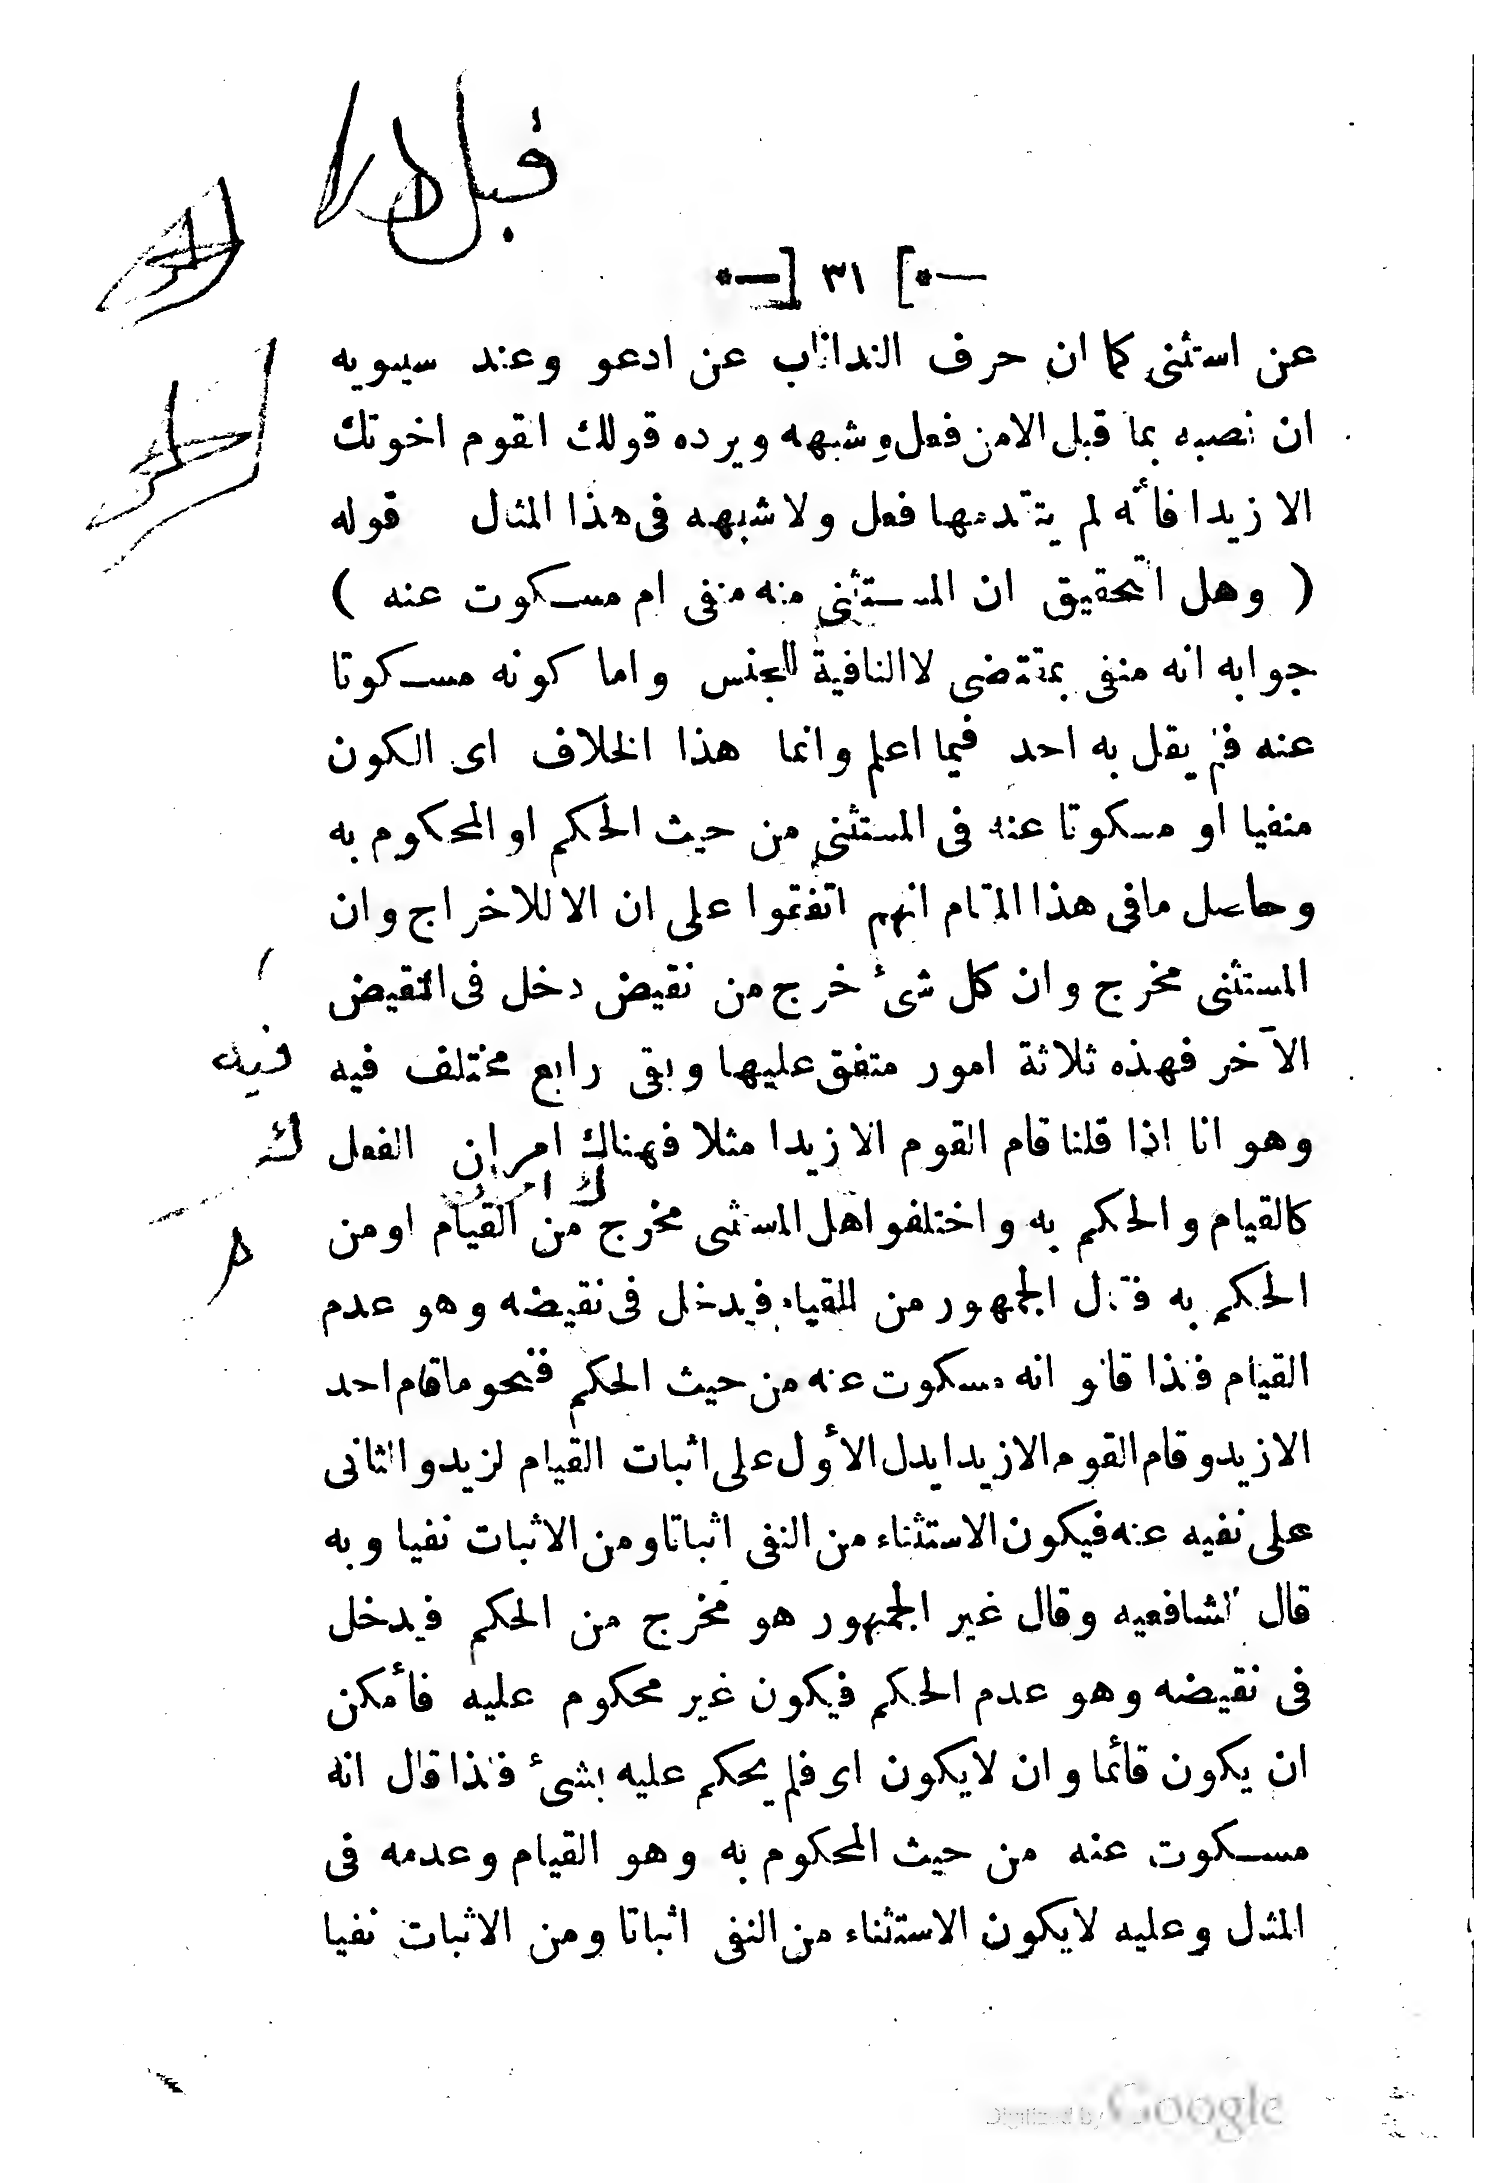 قبل
—•[ ٣١ ]—•
عن استثنى كما ان حرف الندا ناب عن ادعو وعند سيبويه
ان نصبه بما قبل الا من فعل وشبهه ويرده قولك القوم اخوتك
الا زيدا فأنه لم يتقدمها فعل ولا شبهه فى هذا المثال قوله
( وهل التحقيق ان المستثنى منه منفى ام مسكوت عنه )
جوابه انه منفى بمقتضى لا النافية للجنس واما كونه مسكوتا
عنه فلم يقل به احد فيما اعلم وانما هذا الخلاف اى الكون
منفيا او مسكوتا عنه فى المستثنى من حيث الحكم او المحكوم به
وحاصل مافى هذا المقام انهم اتفقوا على ان الا للاخراج وان
المستثنى مخرج وان كل شئ خرج من نقيض دخل فى النقيض
الآخر فهذه ثلاثة امور متفق عليها وبقى رابع مختلف فيه
فيه
وهو انا اذا قلنا قام القوم الا زيدا مثلا فهناك امران الفعل
ك
كالقيام والحكم به واختلفوا هل المستثنى مخرج من القيام او من
الحكم به فقال الجمهور من القيام فيدخل فى نقيضه وهو عدم
القيام فلذا قالو انه مسكوت عنه من حيث الحكم فنحو ماقام احد
الا زيد وقام القوم الا زيدا يدل الأول على اثبات القيام لزيد والثانى
على نفيه عنه فيكون الاستثناء من النفى اثباتا ومن الاثبات نفيا وبه
قال الشافعيه وقال غير الجمهور هو مخرج من الحكم فيدخل
فى نقيضه وهو عدم الحكم فيكون غير محكوم عليه فأمكن
ان يكون قائما وان لايكون اى فلم يحكم عليه بشئ فلذا قال انه
مسكوت عنه من حيث المحكوم به وهو القيام وعدمه فى
المثال وعليه لايكون الاستثناء من النفى اثباتا ومن الاثبات نفيا
Digitized by Google